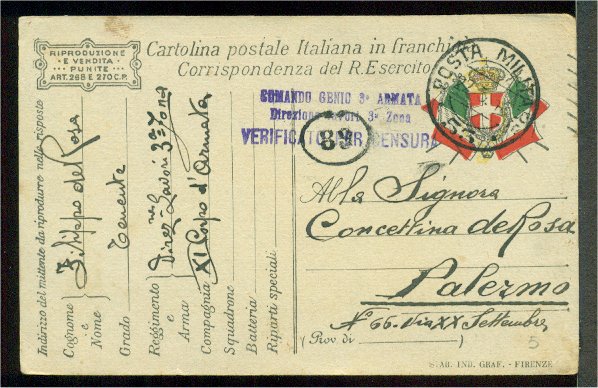 RIPRODUZIONE
E VENDITA
PUNITE
ART. 268 E 270 C.P.
Cartolina postale Italiana in franchi
Corrispondenza del R. Esercito
POSTA MILITA
53
COMANDO GENIO 3ª ARMATA
Direzione Lavori 3ª Zona
VERIFICATO PER CENSURA
89
Indirizzo del mittente da riprodurre nella risposta
Cognome e Nome
Filippo de Rosa
Grado
Tenente
Reggimento e Arma
Direzne Lavori 3ª Zona
Compagnia
XI Corpo d'Armata
Squadrone
Batteria
Riparti speciali
Alla Signora
Concettina de Rosa
Palermo
Nº 66. Via XX Settembre
(Prov di)
5
STAB. IND. GRAF. - FIRENZE